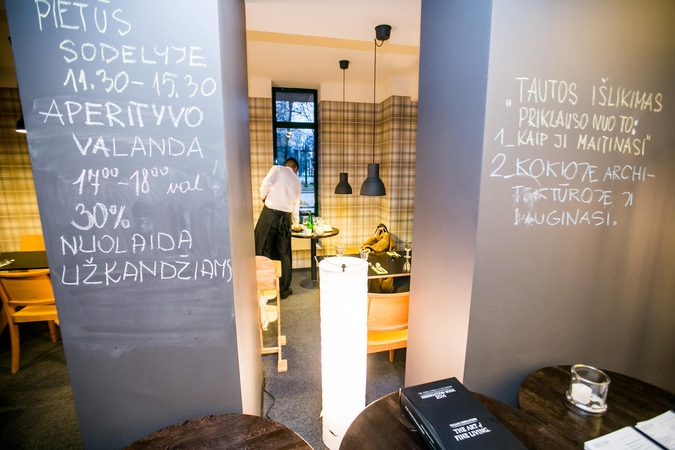 PIETŪS
SODELYJE
11.30 - 15.30
APERITYVO
VALANDA
17⁰⁰-18⁰⁰ val!
30%
NUOLAIDA
UŽKANDŽIAMS
„TAUTOS IŠLIKIMAS
PRIKLAUSO NUO TO:
1_ KAIP JI MAITINASI"
2_ KOKIOJE ARCHI-
TEKTŪROJE JI
DAUGINASI.
THE ART OF
FINE LIVING